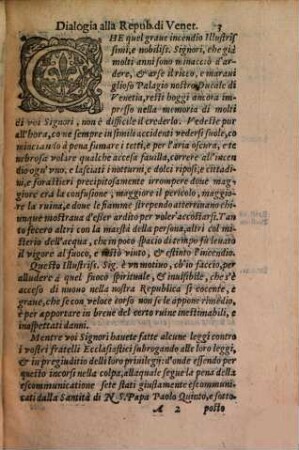 Dialogia alla Repub. di Venet. 3
CHE quel graue incendio Illustrißi
simi, e nobilist. Signori, che già
molti anni sono minacciò d'ar
dere, & arse il ricco, e marani
glioso Palagio nostro Ducale di
Venetia, resti hoggi ancora im
presso nella memoria di molti
di voi Signori, non è difficile il crederlo. Vedeste pur
all'hora, come sempre in simili accidenti vedersi suole, co
minciansi à pena fumare i tetti, e per l'aria oscura, e te
nebrosa volare qualche accesa fauilla, correre all'incen
dio ogn'vno, e lasciati i notturni, e dolci riposi, e citta
dini, e forastieri precipitosamente irrompere doue mag
giore era la confusione, maggiore il pericolo, maggio
re la ruina, e doue le fiamme strependo atterriuano chi
unque mostraua d'esser ardito per voler accostarsi. Tan
to fecero altri con la maestà della persona, altri col mi
nisterio dell'acqua, che in poco spatio di tempo fù leuato
il vigore al fuoco, e restò vinto, & estinto l'incendio.
Questo Illustriss. Sig. è vn motiuo, ch'io faccio, per
alludere à quel fuoco spirituale, & inuisibile, che s'è
acceso di nuouo nella nostra Republica si cocente, e
graue, che se con veloce corso non se le appone rimedio,
è per apportare in breue del certo ruine inestimabili, e
inaspettati danni.
Mentre voi Signori hauete fatte alcune leggi contro
i vostri fratelli Ecclesiastici subrogando alle loro leggi,
& in pregiuditio delli loro priuilegi: d'onde essendo per
questo incorsi nella colpa, alla quale segue la pena della
escommunicatione sete stati giustamente escommuni-
cati dalla Santità di N. S. Papa Paolo Quinto, e sotto-
A 2 posto